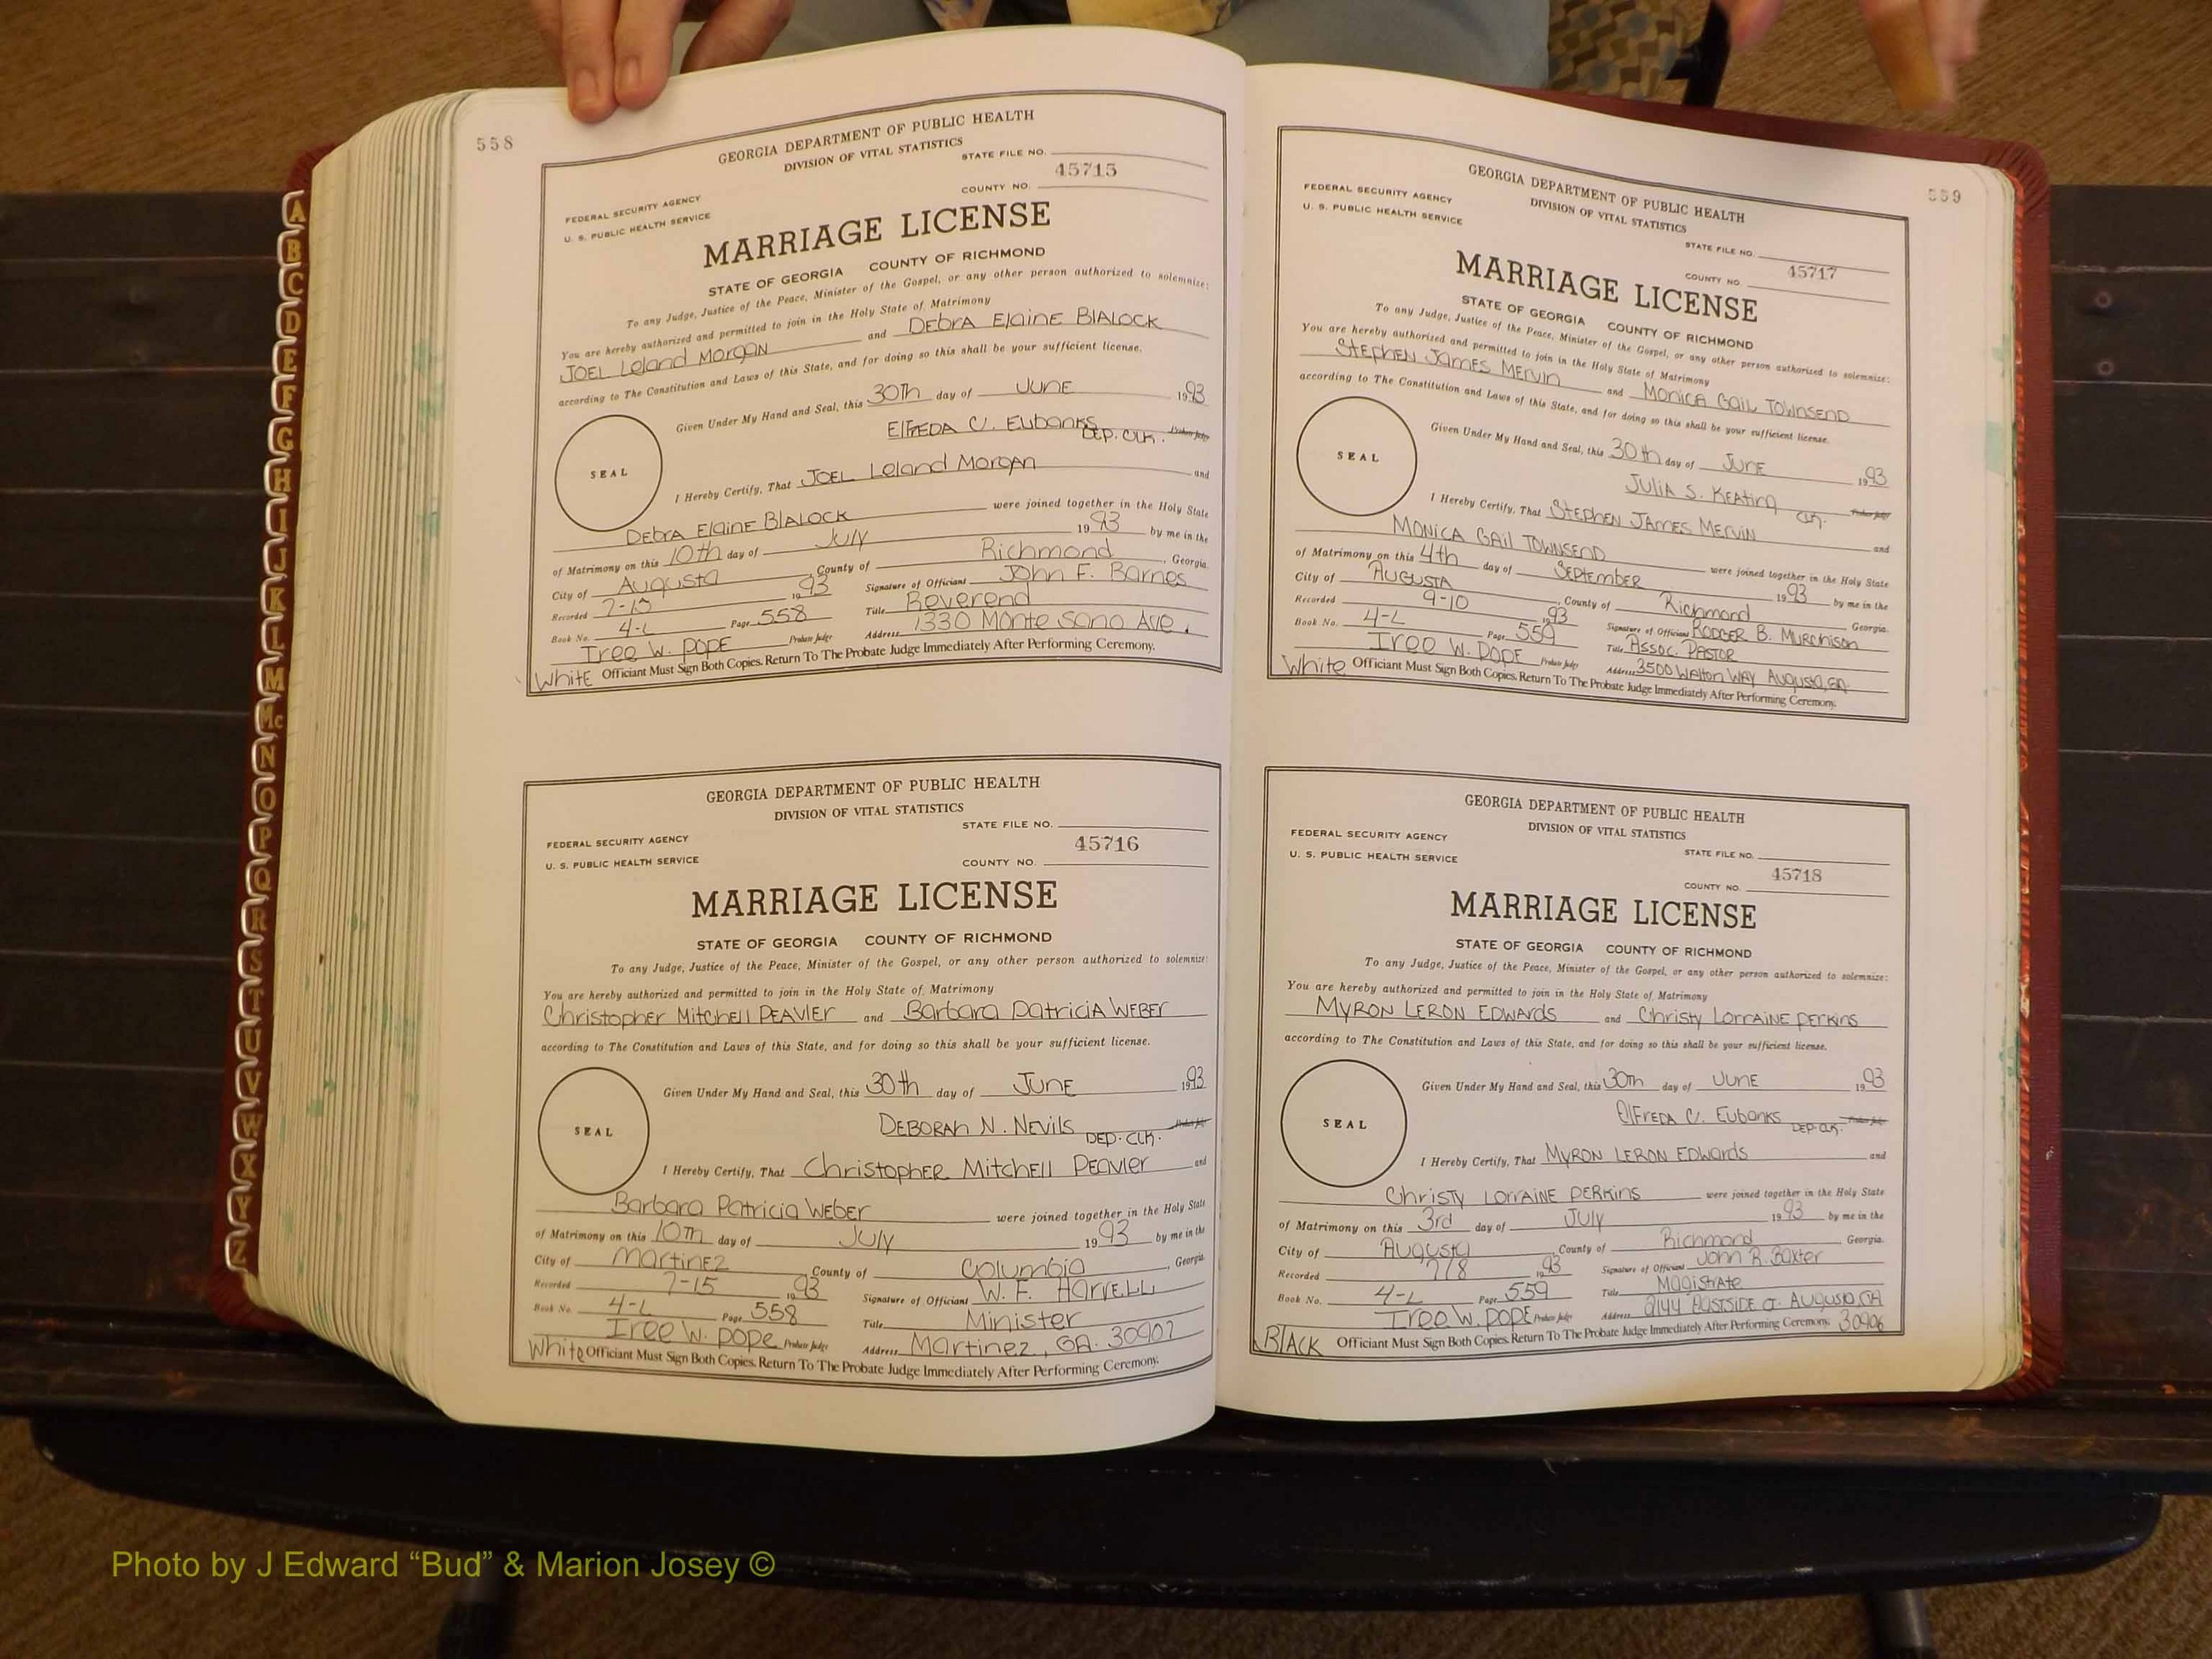 558
GEORGIA DEPARTMENT OF PUBLIC HEALTH
DIVISION OF VITAL STATISTICS
STATE FILE NO.
45715
FEDERAL SECURITY AGENCY
COUNTY NO.
U. S. PUBLIC HEALTH SERVICE
MARRIAGE LICENSE
STATE OF GEORGIA COUNTY OF RICHMOND
To any Judge, Justice of the Peace, Minister of the Gospel, or any other person authorized to solemnize:
You are hereby authorized and permitted to join in the Holy State of Matrimony
JOEL Leland Morgan and DEbra Elaine BlALOCK
according to The Constitution and Laws of this State, and for doing so this shall be your sufficient license.
Given Under My Hand and Seal, this 30Th day of JUNE 1993
ElFREDA C. Eubanks DEP. CLK. Probate Judge
SEAL
I Hereby Certify, That JOEL Leland Morgan and
Debra Elaine BlALOCK were joined together in the Holy State
of Matrimony on this 10th day of July 1993 by me in the
City of Augusta County of Richmond, Georgia.
Recorded 7-15 1993 Signature of Officiant John F. Barnes
Book No. 4-L Page 558 Title Reverend
Iree W. POPE Probate Judge Address 1330 Monte Sano Ave.
WhitE Officiant Must Sign Both Copies. Return To The Probate Judge Immediately After Performing Ceremony.
GEORGIA DEPARTMENT OF PUBLIC HEALTH
DIVISION OF VITAL STATISTICS
STATE FILE NO.
45716
FEDERAL SECURITY AGENCY
U. S. PUBLIC HEALTH SERVICE
COUNTY NO.
MARRIAGE LICENSE
STATE OF GEORGIA COUNTY OF RICHMOND
To any Judge, Justice of the Peace, Minister of the Gospel, or any other person authorized to solemnize:
You are hereby authorized and permitted to join in the Holy State of Matrimony
Christopher Mitchell PEAVlER and Barbara PatriciA WEBER
according to The Constitution and Laws of this State, and for doing so this shall be your sufficient license.
Given Under My Hand and Seal, this 30th day of JUNE 1993
DEBORAh N. NEVils DEP. CLK. Probate Judge
SEAL
I Hereby Certify, That ChristophER Mitchell PEAVlER and
Barbara Patricia WEBER were joined together in the Holy State
of Matrimony on this 10Th day of July 1993 by me in the
City of MartinEZ County of Columbia, Georgia.
Recorded 7-15 1993 Signature of Officiant W. F. HARVELL
Book No. 4-L Page 558 Title Minister
Iree W. POPE Probate Judge Address Martinez, GA. 30907
White Officiant Must Sign Both Copies. Return To The Probate Judge Immediately After Performing Ceremony.
559
GEORGIA DEPARTMENT OF PUBLIC HEALTH
DIVISION OF VITAL STATISTICS
FEDERAL SECURITY AGENCY
U. S. PUBLIC HEALTH SERVICE
STATE FILE NO.
45717
COUNTY NO.
MARRIAGE LICENSE
STATE OF GEORGIA COUNTY OF RICHMOND
To any Judge, Justice of the Peace, Minister of the Gospel, or any other person authorized to solemnize:
You are hereby authorized and permitted to join in the Holy State of Matrimony
StEphEN JAMES MERVIN and MONICA GAIL TOWNSEND
according to The Constitution and Laws of this State, and for doing so this shall be your sufficient license.
Given Under My Hand and Seal, this 30th day of JUNE 1993
JuliA S. KEAting Clk. Probate Judge
SEAL
I Hereby Certify, That StEphEN JAMES MERVIN and
MONICA GAIL TOWNSEND were joined together in the Holy State
of Matrimony on this 4th day of SEPtEMbER 1993 by me in the
City of AUGUSTA County of Richmond Georgia.
Recorded 9-10 1993 Signature of Officiant RODGER B. MURchison
Book No. 4-L Page 559 Title ASSOC. PASTOR
IREE W. POPE Probate Judge Address 3500 WAlton WAY AUGUSTA, GA.
White Officiant Must Sign Both Copies. Return To The Probate Judge Immediately After Performing Ceremony.
GEORGIA DEPARTMENT OF PUBLIC HEALTH
DIVISION OF VITAL STATISTICS
FEDERAL SECURITY AGENCY
U. S. PUBLIC HEALTH SERVICE
STATE FILE NO.
45718
COUNTY NO.
MARRIAGE LICENSE
STATE OF GEORGIA COUNTY OF RICHMOND
To any Judge, Justice of the Peace, Minister of the Gospel, or any other person authorized to solemnize:
You are hereby authorized and permitted to join in the Holy State of Matrimony
MYRON LERON EDWARDS and Christy LORRAINE PERKINS
according to The Constitution and Laws of this State, and for doing so this shall be your sufficient license.
Given Under My Hand and Seal, this 30Th day of JUNE 1993
ElFREDA C. Eubanks DEP. CLK. Probate Judge
SEAL
I Hereby Certify, That MYRON LERON EDWARds and
ChRISTY LORRAINE PERKINS were joined together in the Holy State
of Matrimony on this 3rd day of July 1993 by me in the
City of Augusta County of Richmond Georgia.
Recorded 7/8 1993 Signature of Officiant John R. Baxter
Book No. 4-L Page 559 Title MAgistrAte
Iree W. POPE Probate Judge Address 2144 EASTSIDE CT. AUGUSTA, GA
BLACK Officiant Must Sign Both Copies. Return To The Probate Judge Immediately After Performing Ceremony. 30906
A
B
C
D
E
F
G
H
I
J
K
L
M
Mc
N
O
P
Q
R
S
T
U
V
W
X
Y
Z
Photo by J Edward “Bud” & Marion Josey ©